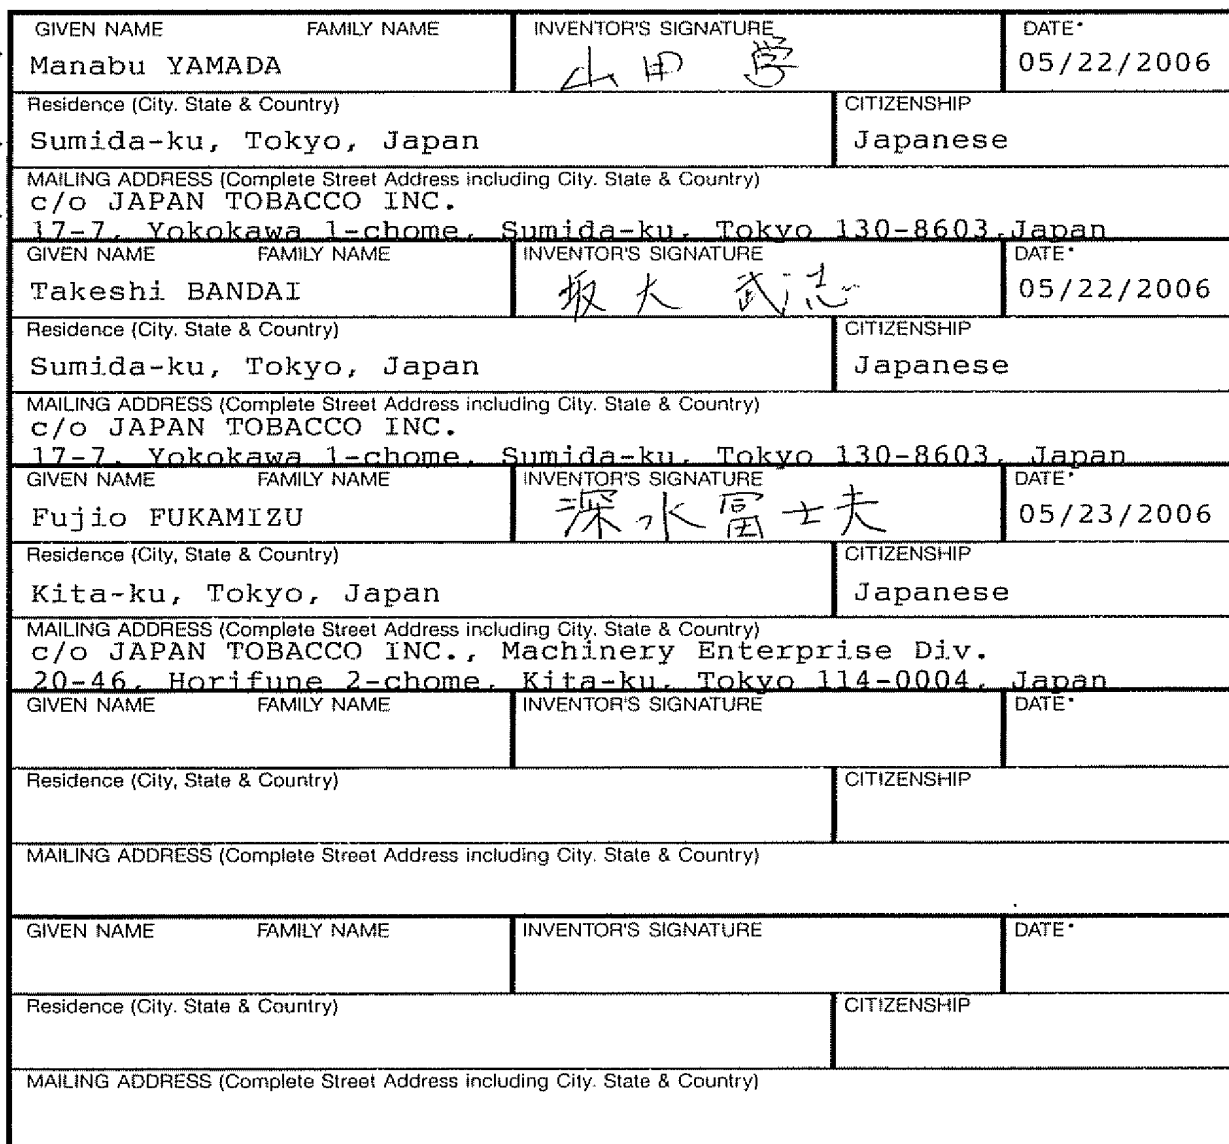 GIVEN NAME FAMILY NAME INVENTOR'S SIGNATURE DATE*
Manabu YAMADA 山田 学 05/22/2006
Residence (City, State & Country) CITIZENSHIP
Sumida-ku, Tokyo, Japan Japanese
MAILING ADDRESS (Complete Street Address including City, State & Country)
c/o JAPAN TOBACCO INC.
17-7, Yokokawa 1-chome, Sumida-ku, Tokyo 130-8603,Japan
GIVEN NAME FAMILY NAME INVENTOR'S SIGNATURE DATE*
Takeshi BANDAI 坂大 武志 05/22/2006
Residence (City, State & Country) CITIZENSHIP
Sumida-ku, Tokyo, Japan Japanese
MAILING ADDRESS (Complete Street Address including City, State & Country)
c/o JAPAN TOBACCO INC.
17-7, Yokokawa 1-chome, Sumida-ku, Tokyo 130-8603, Japan
GIVEN NAME FAMILY NAME INVENTOR'S SIGNATURE DATE*
Fujio FUKAMIZU 深水冨士夫 05/23/2006
Residence (City, State & Country) CITIZENSHIP
Kita-ku, Tokyo, Japan Japanese
MAILING ADDRESS (Complete Street Address including City, State & Country)
c/o JAPAN TOBACCO INC., Machinery Enterprise Div.
20-46, Horifune 2-chome, Kita-ku, Tokyo 114-0004, Japan
GIVEN NAME FAMILY NAME INVENTOR'S SIGNATURE DATE*
Residence (City, State & Country) CITIZENSHIP
MAILING ADDRESS (Complete Street Address including City, State & Country)
GIVEN NAME FAMILY NAME INVENTOR'S SIGNATURE DATE*
Residence (City, State & Country) CITIZENSHIP
MAILING ADDRESS (Complete Street Address including City, State & Country)